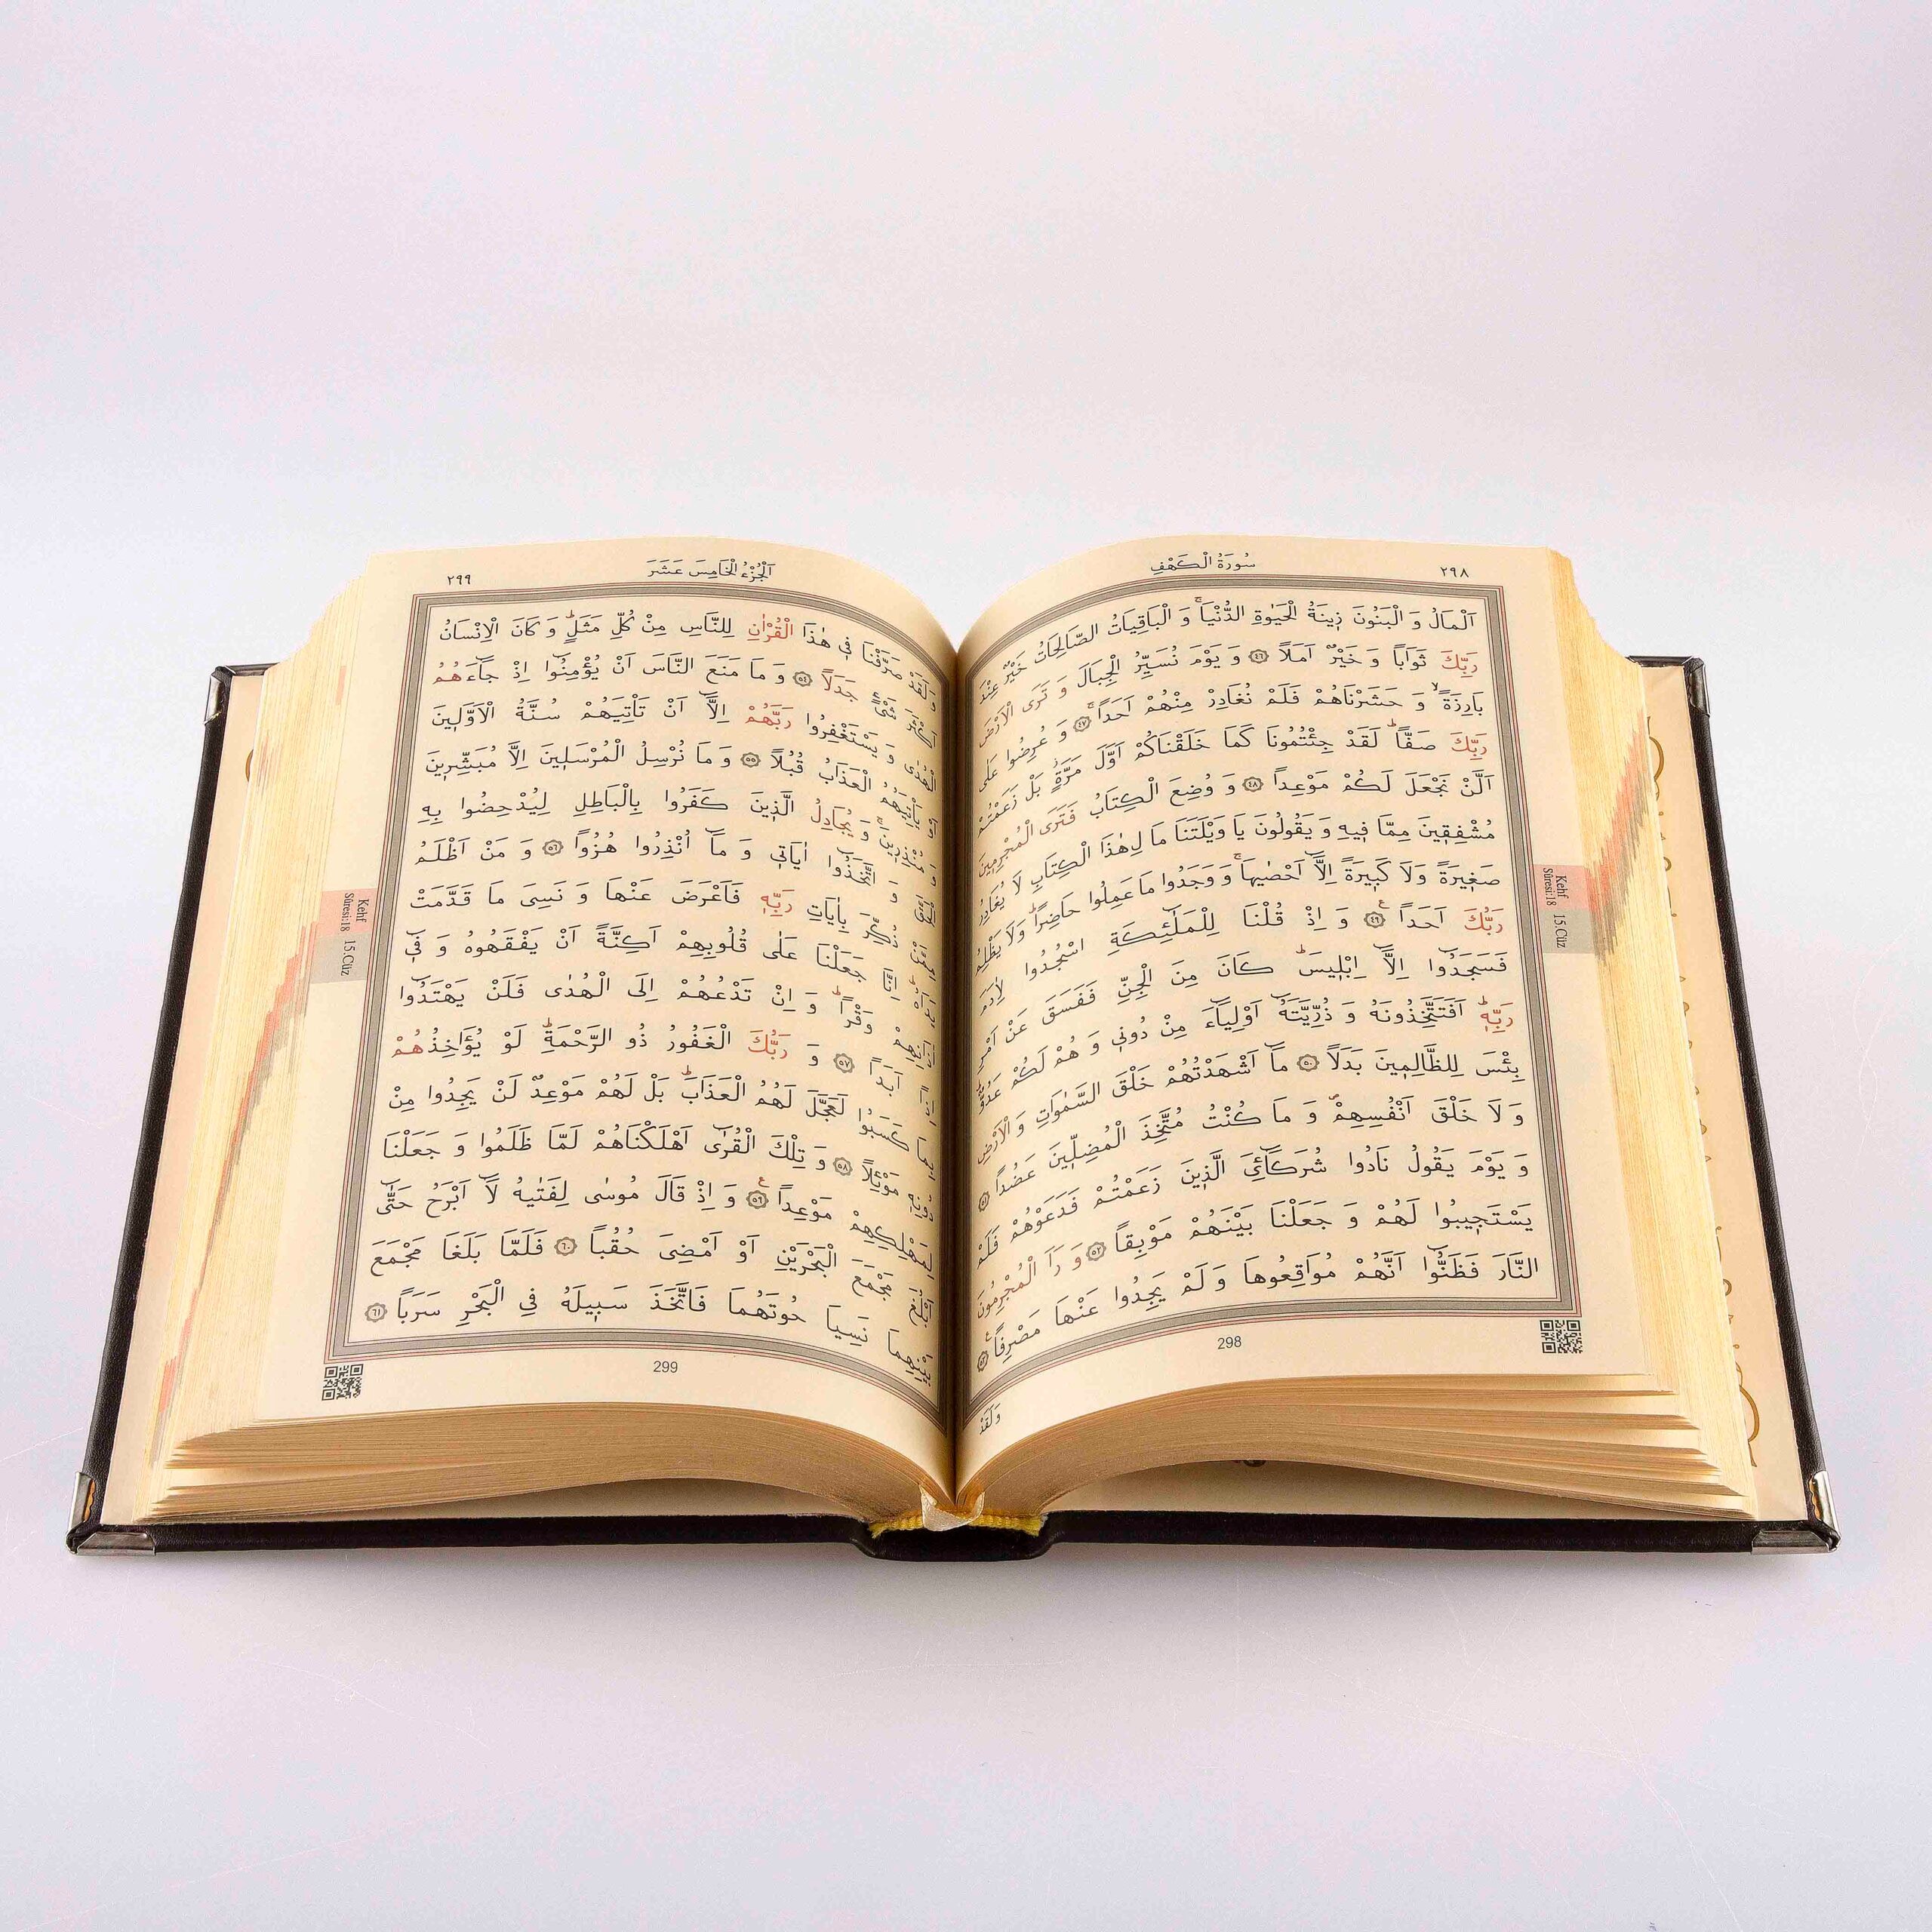 سُورَةُ الْكَهْفِ
٢٩٨
اَلْمَالُ وَ الْبَنُونَ زِينَةُ الْحَيٰوةِ الدُّنْيَاۚ وَ الْبَاقِيَاتُ الصَّالِحَاتُ خَيْرٌ عِنْدَ
رَبِّكَ ثَوَاباً وَ خَيْرٌ اَمَلاً ٤٦ وَ يَوْمَ نُسَيِّرُ الْجِبَالَ وَ تَرَى الْاَرْضَ
بَارِزَةًۙ وَ حَشَرْنَاهُمْ فَلَمْ نُغَادِرْ مِنْهُمْ اَحَداًۚ ٤٧ وَ عُرِضُوا عَلٰى
رَبِّكَ صَفًّاۜ لَقَدْ جِئْتُمُونَا كَمَا خَلَقْنَاكُمْ اَوَّلَ مَرَّةٍۘ بَلْ زَعَمْتُمْ
اَلَّنْ نَجْعَلَ لَكُمْ مَوْعِداً ٤٨ وَ وُضِعَ الْكِتَابُ فَتَرَى الْمُجْرِمِينَ
مُشْفِقِينَ مِمَّا فِيهِ وَ يَقُولُونَ يَا وَيْلَتَنَا مَا لِ هٰذَا الْكِتَابِ لَا يُغَادِرُ
صَغِيرَةً وَلَا كَبِيرَةً اِلَّٓا اَحْصٰيهَاۚ وَ وَجَدُوا مَا عَمِلُوا حَاضِراًۜ وَلَا يَظْلِمُ
رَبُّكَ اَحَداً ٤٩ وَ اِذْ قُلْنَا لِلْمَلٰٓئِكَةِ اسْجُدُوا لِاٰدَمَ
فَسَجَدُٓوا اِلَّٓا اِبْلِيسَۜ كَانَ مِنَ الْجِنِّ فَفَسَقَ عَنْ اَمْرِ
رَبِّهٖۜ اَفَتَتَّخِذُونَهُ وَ ذُرِّيَّتَهُٓ اَوْلِيَٓاءَ مِنْ دُونِي وَ هُمْ لَكُمْ عَدُوٌّۜ
بِئْسَ لِلظَّالِمِينَ بَدَلاً ٥٠ مَٓا اَشْهَدْتُهُمْ خَلْقَ السَّمٰوَاتِ وَ الْاَرْضِ
وَ لَا خَلْقَ اَنْفُسِهِمْۖ وَ مَا كُنْتُ مُتَّخِذَ الْمُضِلِّينَ عَضُداً ٥١
وَ يَوْمَ يَقُولُ نَادُوا شُرَكَٓائِيَ الَّذِينَ زَعَمْتُمْ فَدَعَوْهُمْ فَلَمْ
يَسْتَجِيبُوا لَهُمْ وَ جَعَلْنَا بَيْنَهُمْ مَوْبِقاً ٥٢ وَ رَاَ الْمُجْرِمُونَ
النَّارَ فَظَنُّٓوا اَنَّهُمْ مُوَاقِعُوهَا وَ لَمْ يَجِدُوا عَنْهَا مَصْرِفاً ٥٣
298
وَلَقَدْ
Kehf
Sûresi:18
15.Cüz
٢٩٩
اَلْجُزْءُ الْخَامِسَ عَشَرَ
وَ لَقَدْ صَرَّفْنَا فِي هٰذَا الْقُرْاٰنِ لِلنَّاسِ مِنْ كُلِّ مَثَلٍۜ وَ كَانَ الْاِنْسَانُ
اَكْثَرَ شَيْءٍ جَدَلاً ٥٤ وَ مَا مَنَعَ النَّاسَ اَنْ يُؤْمِنُٓوا اِذْ جَٓاءَهُمُ
الْهُدٰى وَ يَسْتَغْفِرُوا رَبَّهُمْ اِلَّٓا اَنْ تَأْتِيَهُمْ سُنَّةُ الْاَوَّلِينَ
يَأْتِيَهُمُ الْعَذَابُ قُبُلاً ٥٥ وَ مَا نُرْسِلُ الْمُرْسَلِينَ اِلَّا مُبَشِّرِينَ
وَ مُنْذِرِينَۚ وَ يُجَادِلُ الَّذِينَ كَفَرُوا بِالْبَاطِلِ لِيُدْحِضُوا بِهِ
الْحَقَّ وَ اتَّخَذُٓوا اٰيَاتِي وَ مَٓا اُنْذِرُوا هُزُواً ٥٦ وَ مَنْ اَظْلَمُ
مِمَّنْ ذُكِّرَ بِاٰيَاتِ رَبِّهٖ فَاَعْرَضَ عَنْهَا وَ نَسِيَ مَا قَدَّمَتْ
يَدَاهُۜ اِنَّا جَعَلْنَا عَلٰى قُلُوبِهِمْ اَكِنَّةً اَنْ يَفْقَهُوهُ وَ فِٓي
اٰذَانِهِمْ وَقْراًۜ وَ اِنْ تَدْعُهُمْ اِلَى الْهُدٰى فَلَنْ يَهْتَدُٓوا
اِذاً اَبَداً ٥٧ وَ رَبُّكَ الْغَفُورُ ذُو الرَّحْمَةِۜ لَوْ يُؤَاخِذُهُمْ
بِمَا كَسَبُوا لَعَجَّلَ لَهُمُ الْعَذَابَۜ بَلْ لَهُمْ مَوْعِدٌ لَنْ يَجِدُوا مِنْ
دُونِهِ مَوْئِلاً ٥٨ وَ تِلْكَ الْقُرٰٓى اَهْلَكْنَاهُمْ لَمَّا ظَلَمُوا وَ جَعَلْنَا
لِمَهْلِكِهِمْ مَوْعِداً ٥٩ وَ اِذْ قَالَ مُوسٰى لِفَتٰيهُ لَٓا اَبْرَحُ حَتّٰٓى
اَبْلُغَ مَجْمَعَ الْبَحْرَيْنِ اَوْ اَمْضِيَ حُقُباً ٦٠ فَلَمَّا بَلَغَا مَجْمَعَ
بَيْنِهِمَا نَسِيَا حُوتَهُمَا فَاتَّخَذَ سَبِيلَهُ فِي الْبَحْرِ سَرَباً ٦١
299
Kehf
Sûresi:18
15.Cüz